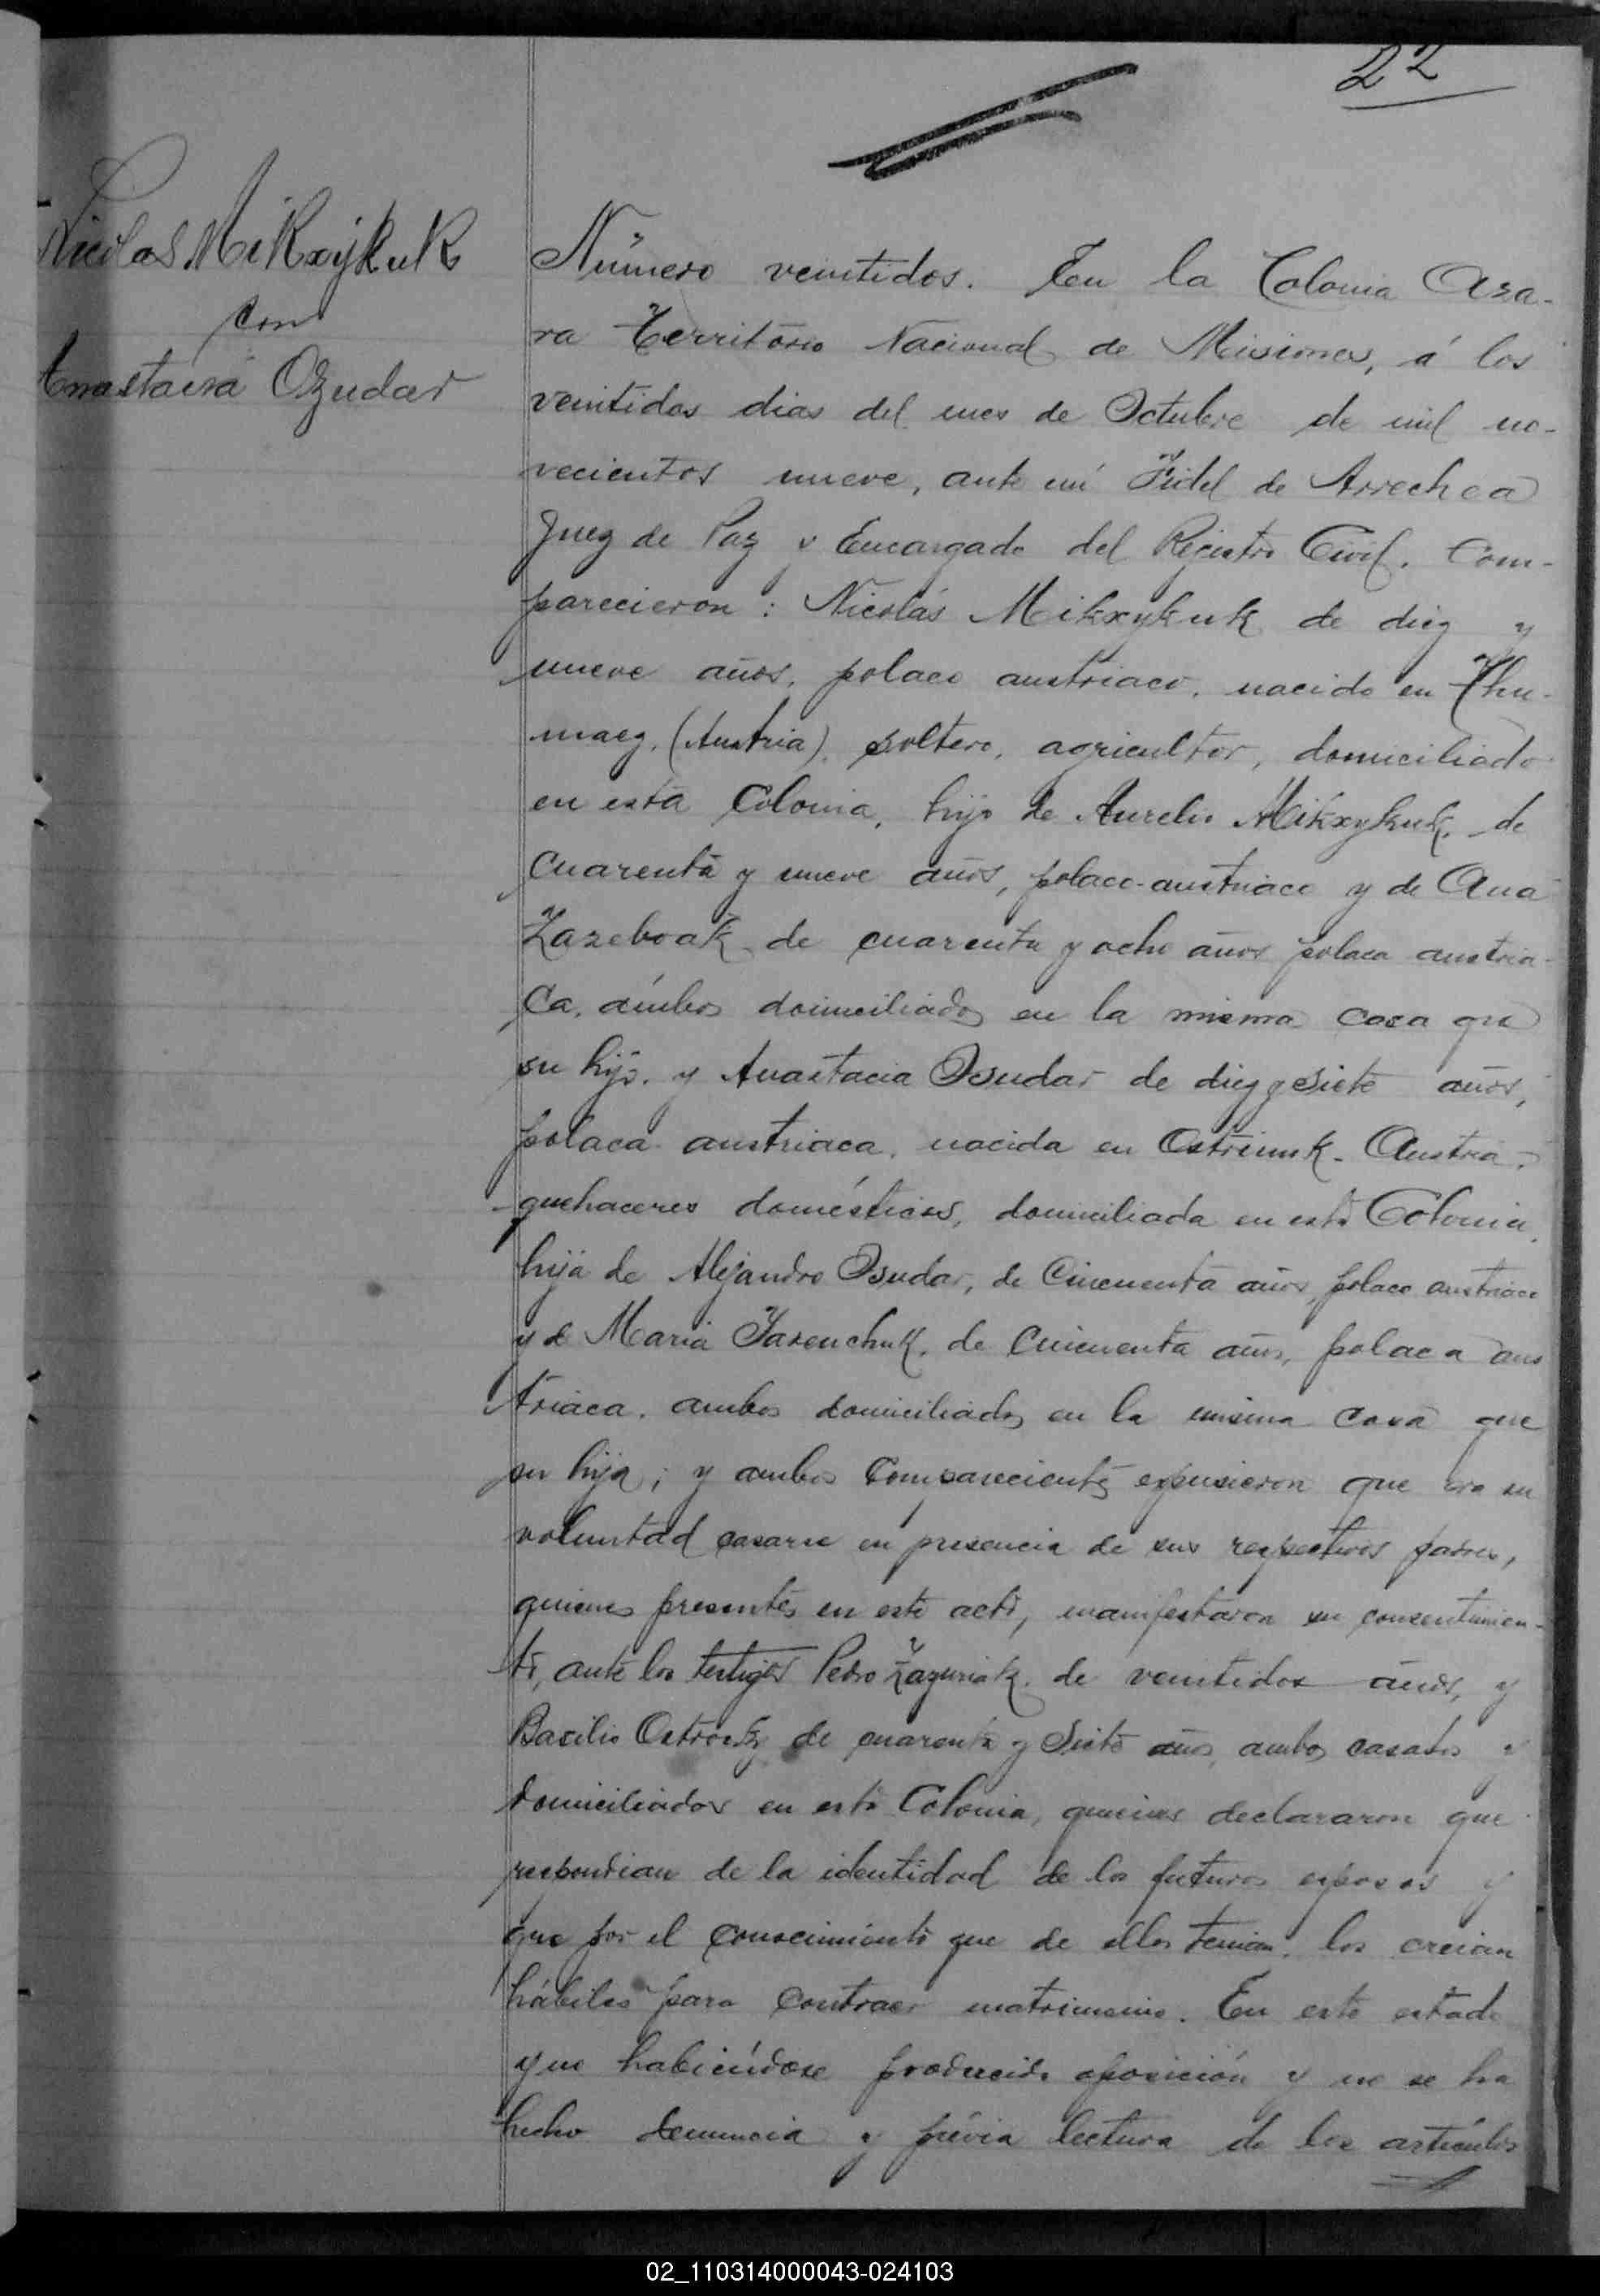 22
Nicolas Mikxykuk
con
Anastacia Ozudar
Número veintidos. En la Colonia Aza-
ra Territorio Nacional de Misiones, á los
veintidos dias del mes de Octubre de mil no-
vecientos nueve, ante mi Fidel de Arrechea
Juez de Paz y Encargado del Rejistro Civil. Com-
parecieron: Nicolás Mikxykuk de diez y
nueve años, polaco austriaco, nacido en Thu-
maez, (Austria), soltero, agricultor, domiciliado
en esta Colonia, hijo de Aurelio Mikxykuk, de
cuarenta y nueve años, polaco-austriaco y de Ana
Zazeboak de cuarenta y ocho años polaca austria-
ca, ámbos domiciliados en la misma casa que
su hijo, y Anastacia Osudar de diez y siete años,
polaca austriaca, nacida en Ostriunk - Austria,
quehaceres domésticos, domiciliada en esta Colonia,
hija de Alejandro Osudar, de Cincuenta años, polaco austriaco
y de Maria Yasenchuk, de Cincuenta años, polaca aus
triaca, ambos domiciliados en la misma casa que
su hija; y ambos Comparecientes expusieron que era su
voluntad casarse en presencia de sus respectivos padres,
quienes presentes en este acto, manifestaron su consentimien-
to, ante los testigos Pedro Zazuriak, de veintidos años, y
Basilio de cuarenta y siete años, ambos casados y
domiciliados en esta Colonia, quienes declararon que
respondian de la identidad de los futuros esposos y
que por el conocimiento que de ellos tenian, los creian
hábiles para contraer matrimonio. En este estado
y no habiéndose producido oposición y no se ha
hecho denuncia y prévia lectura de los artículos
02_110314000043-024103